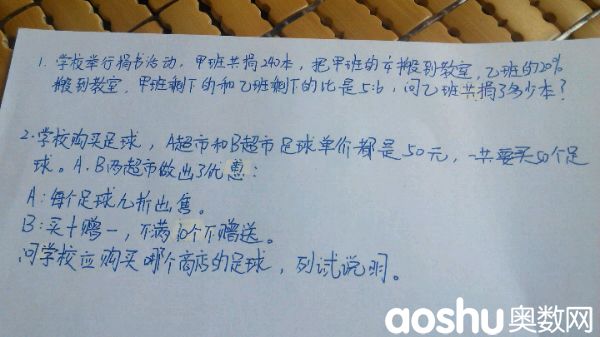 1. 学校举行捐书活动，甲班共捐240本，把甲班的 搬到教室，乙班的20%
搬到教室，甲班剩下的和乙班剩下的比是5:6，问乙班共捐了多少本？
2. 学校购买足球，A超市和B超市足球单价都是50元，一共要买50个足
球。A.B两超市做出了优惠：
A：每个足球九折出售。
B：买十赠一，不满10个不赠送。
问学校应购买哪个商店的足球，列试说明。
aoshu奥数网